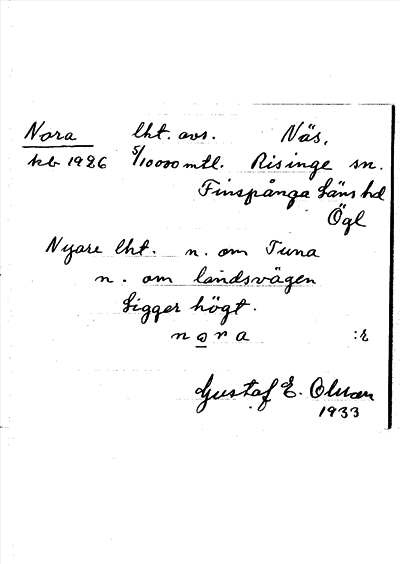 Nora lht. avs. Näs,
kb 1926 5/10000 mtl. Risinge sn.
Finspånga Läns hd
Ögl
Nyare lht. n. om Tuna
n. om landsvägen
Ligger högt.
nora :r
Gustaf E. Olman
1933